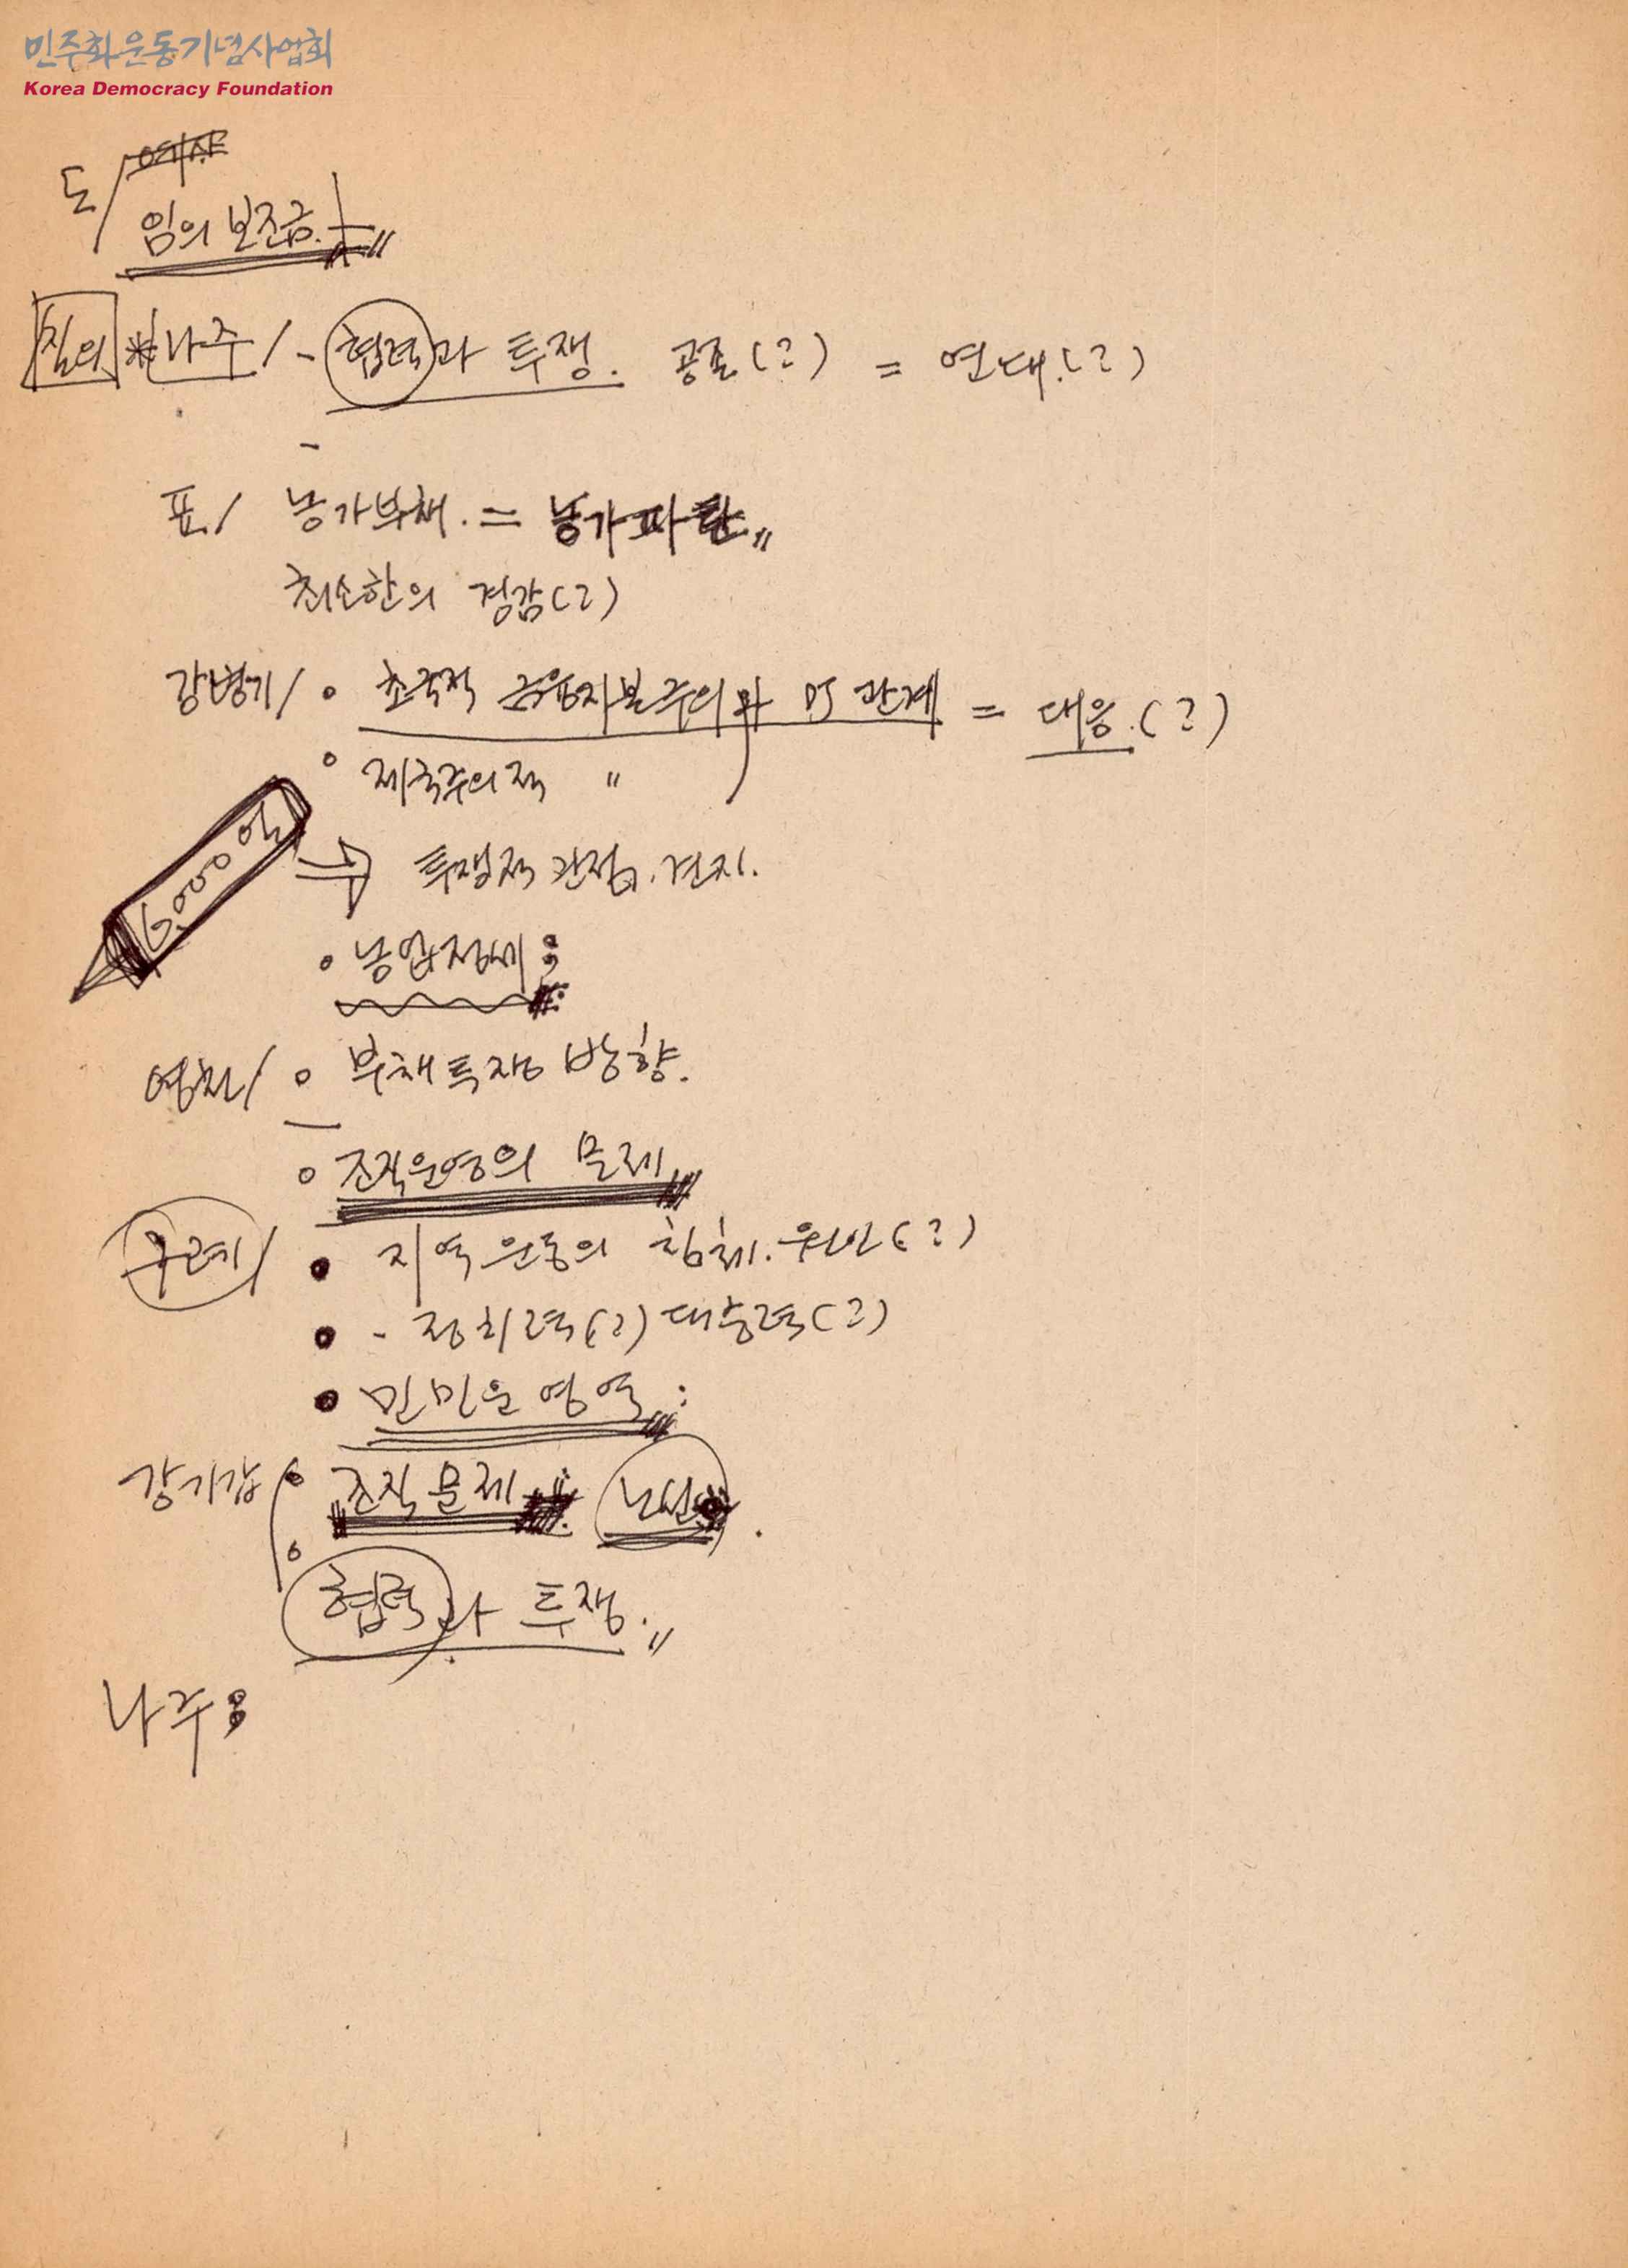 민주화운동기념사업회
Korea Democracy Foundation
도/ 예산
임의 보조금.
질의 * 나주/ - 협력과 투쟁. 공조(?) = 연대.(?)
-
표/ 농가부채. = 농가파탄.〃
최소한의 경감(?)
강병기/ · 초국적 금융자본주의와 의 관계 = 대응.(?)
· 제국주의적 〃
6,000억
→ 투쟁적 관점. 견지.
· 농업정세;
영천/ · 부채투쟁 방향.
· 조직운영의 문제
구례/ · 지역운동의 침체. 원인(?)
· - 정치력(?) 대응력(?)
· 민민운영역:
강기갑 · 조직문제 노선
· 협력과 투쟁.〃
나주;